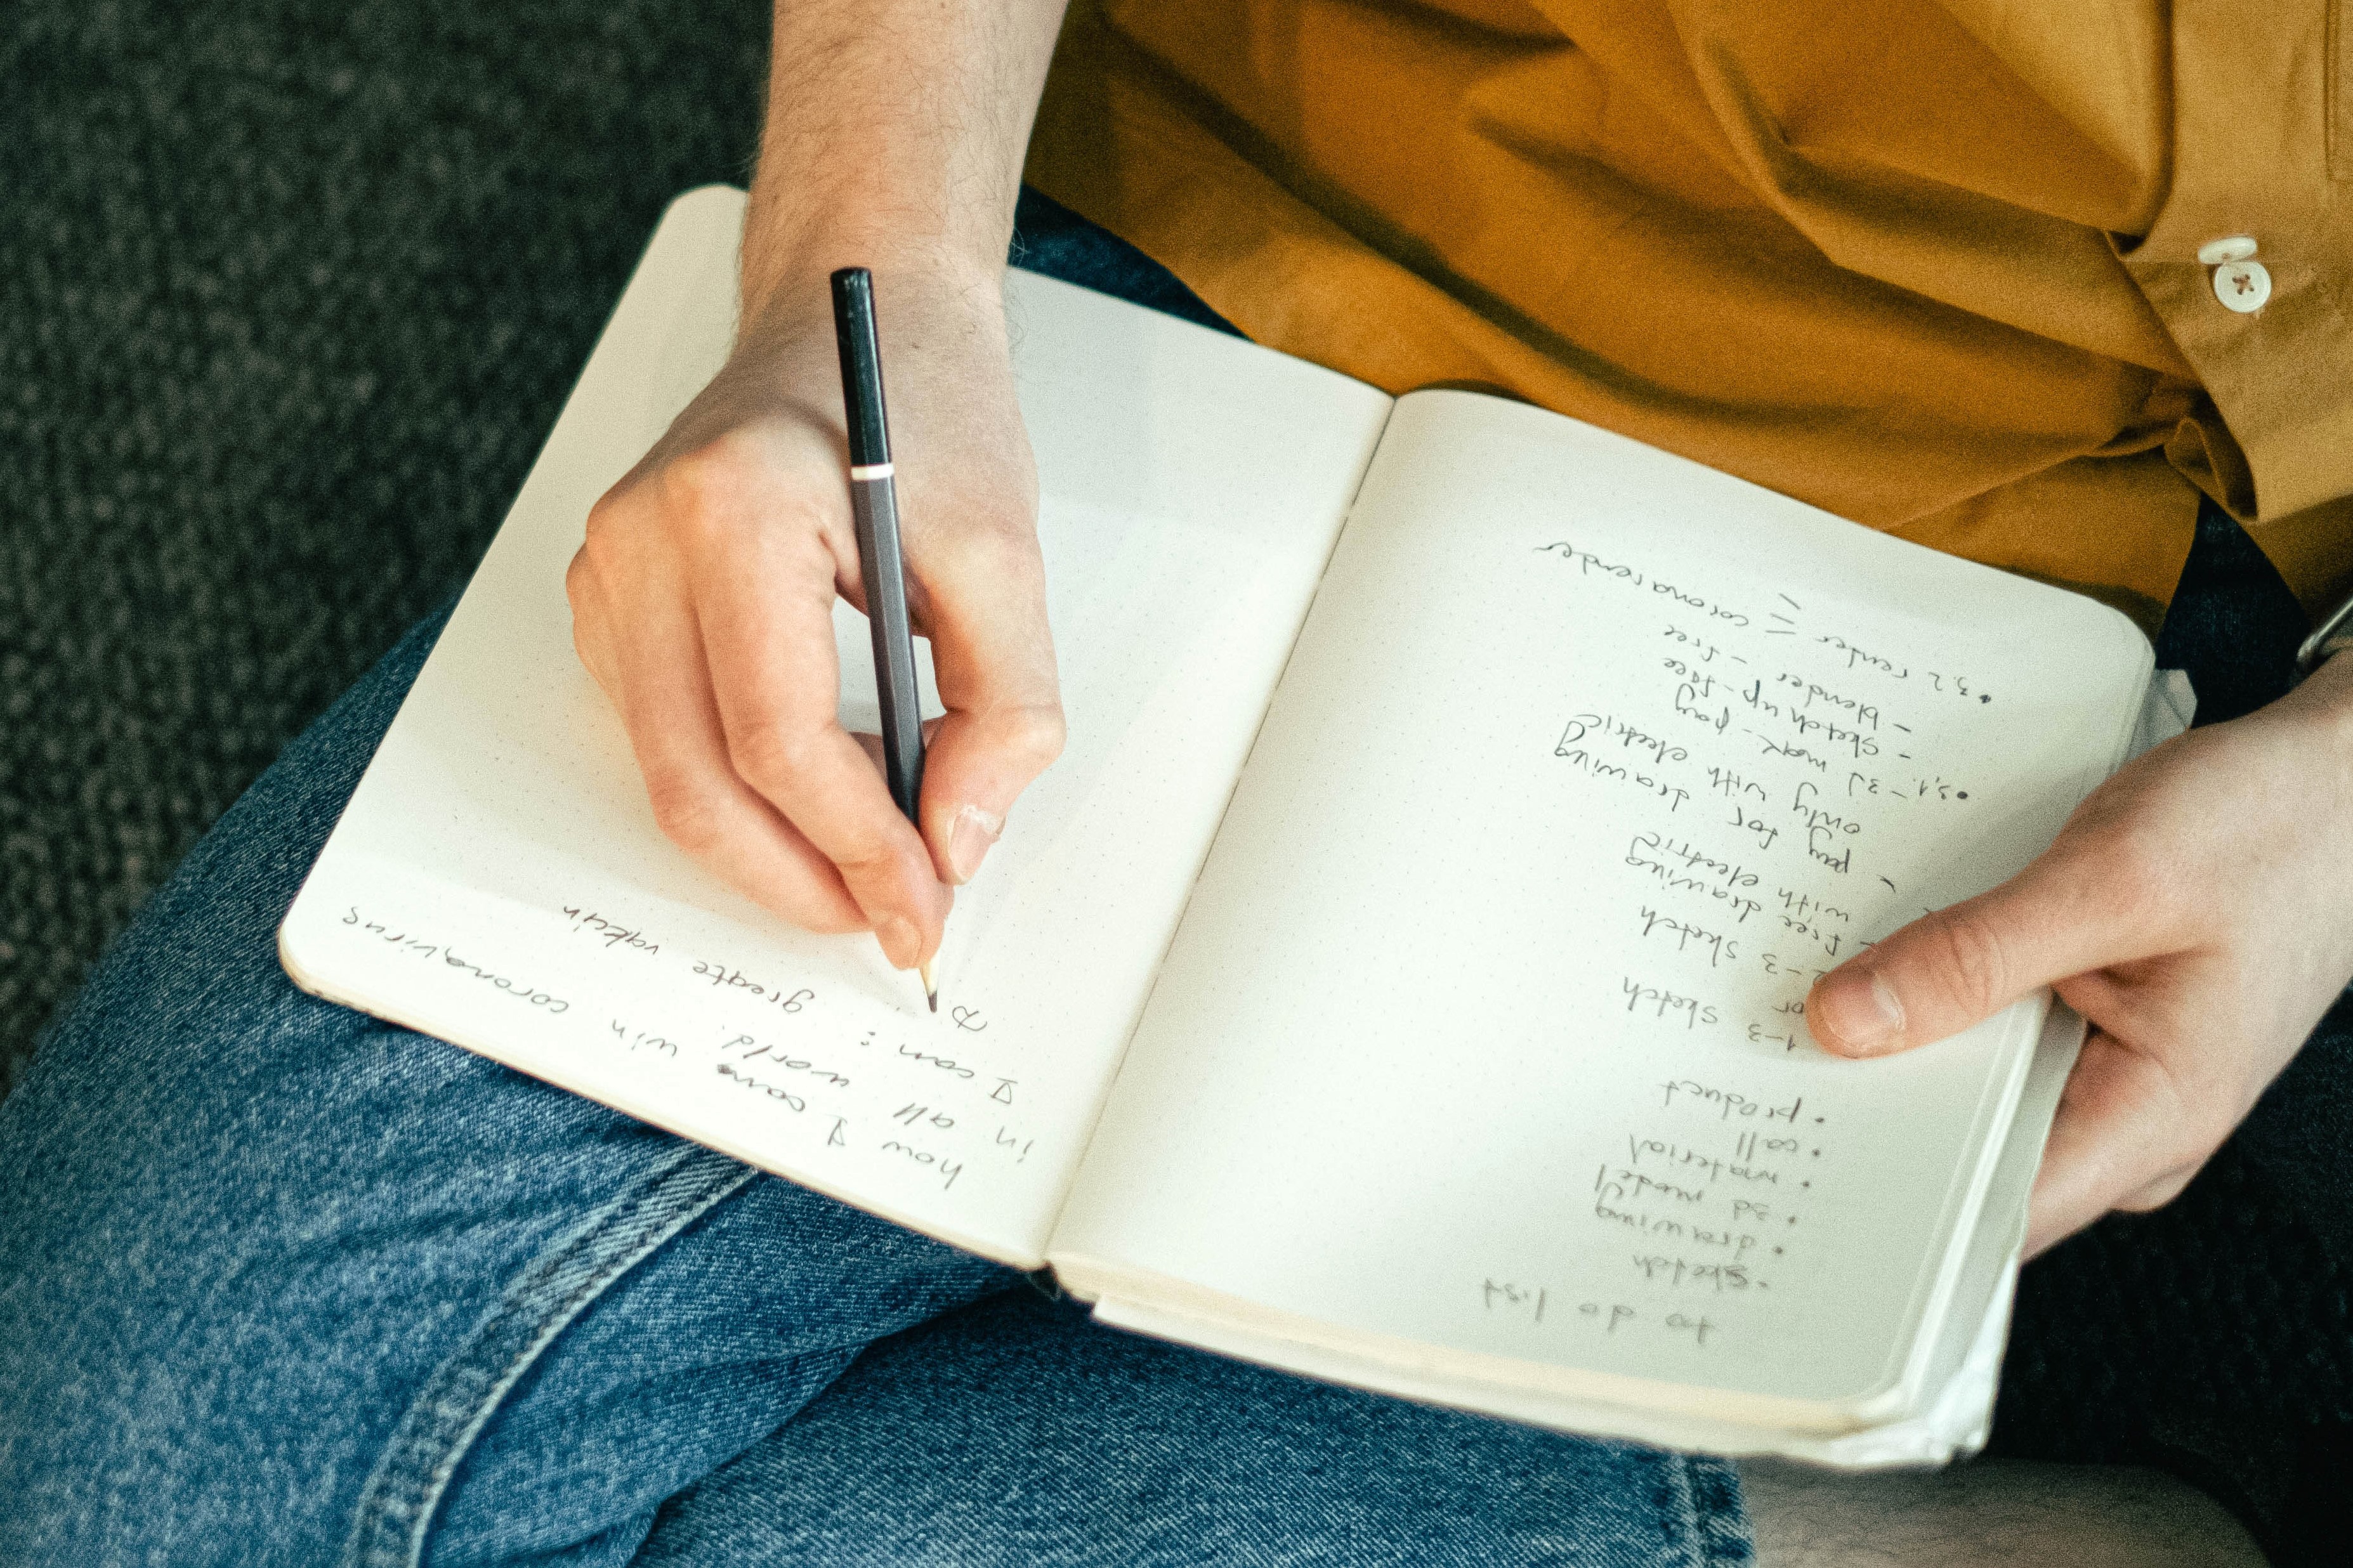 to do list
- sketch
• drawing
• 3d model
• material
• call
• product
1-3 sketch
or
2-3 sketch
- free drawing
with electric
- pay for drawing
only with electric
• 3.1. - 3d max - pay
- sketch up - free
- blender - free
• 3.2 render = corona render
how I can win coronavirus
in all world.
I can:
greate vakcin